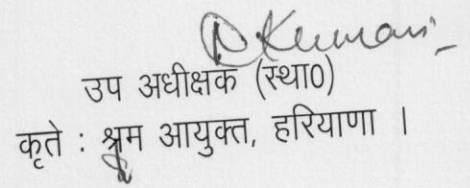 Kumari
उप अधीक्षक (स्था0)
कृते : श्रम आयुक्त, हरियाणा ।